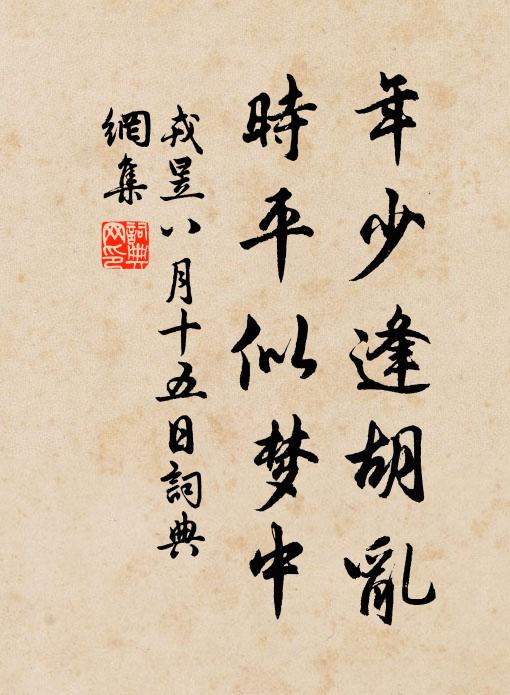 年少逢胡亂
時平似梦中
戎昱八月十五日詞典
網集
詞典
网印